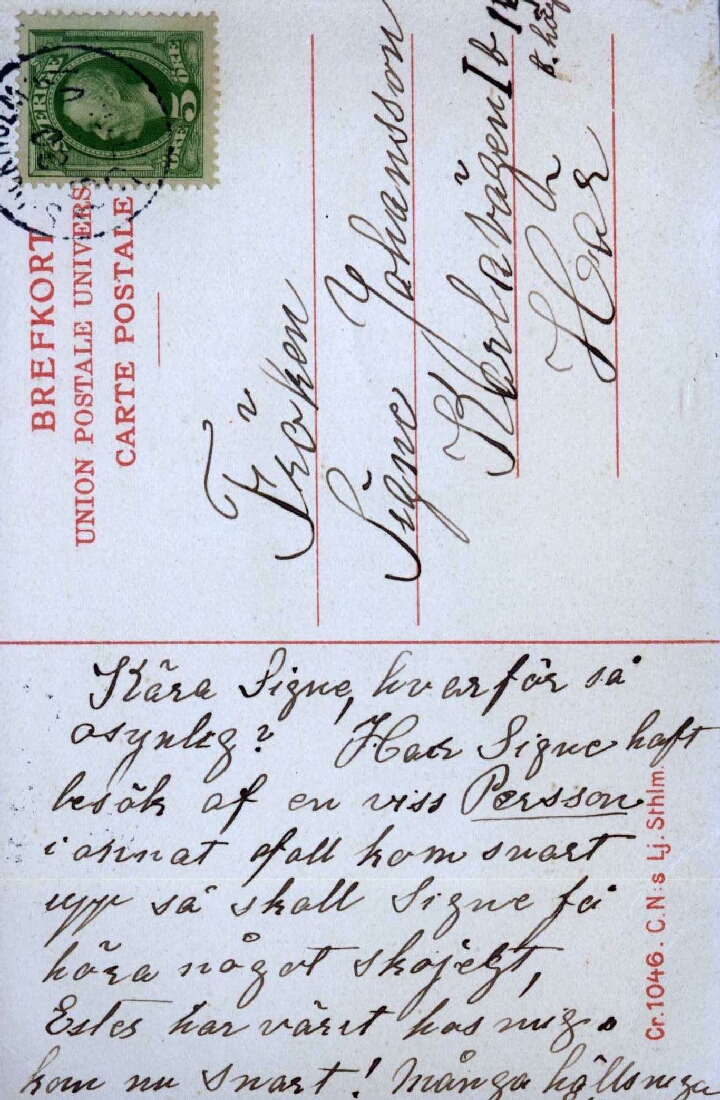 BREFKORT
UNION POSTALE UNIVERS
CARTE POSTALE
SVERIGE
5
ÖRE
Fröken
Signe Johansson
Karlavägen 1 b
Här
Kära Signe, hvarför så
osynlig? Har Signe haft
besök af en viss Persson
i annat fall kom snart
upp så skall Signe få
höra något skojigt,
Ester har värit hos mig.
kom nu snart! Många hällsninga
Cr. 1046. C.N:s Lj. Sthlm.